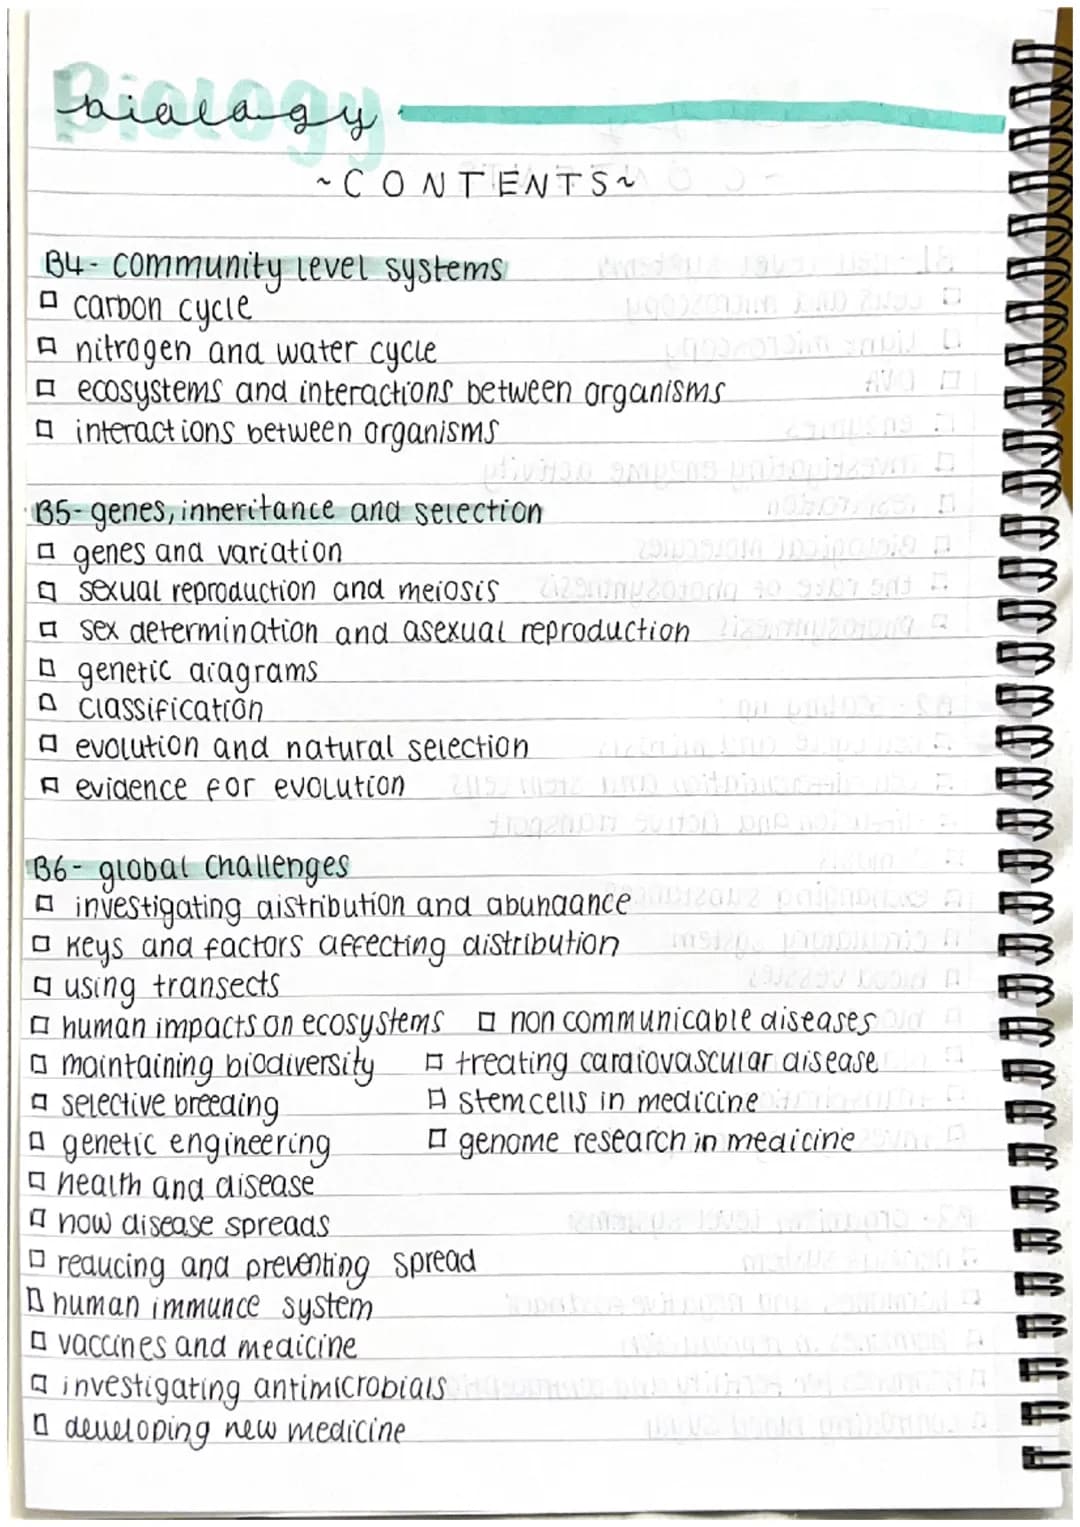 Biology
biology
~CONTENTS~
B4- community level systems
carbon cycle
nitrogen and water cycle
ecosystems and interactions between organisms
interactions between organisms
B5- genes, inheritance and selection
genes and variation
sexual reproduction and meiosis
sex determination and asexual reproduction
genetic diagrams
classification
evolution and natural selection
evidence for evolution
B6- global challenges
investigating distribution and abundance
keys and factors affecting distribution
using transects
human impacts on ecosystems
maintaining biodiversity
selective breeding
genetic engineering
health and disease
how disease spreads
reducing and preventing spread
human immunce system
vaccines and medicine
investigating antimicrobials
developing new medicine
non communicable diseases
treating cardiovascular disease
stem cells in medicine
genome research in medicine